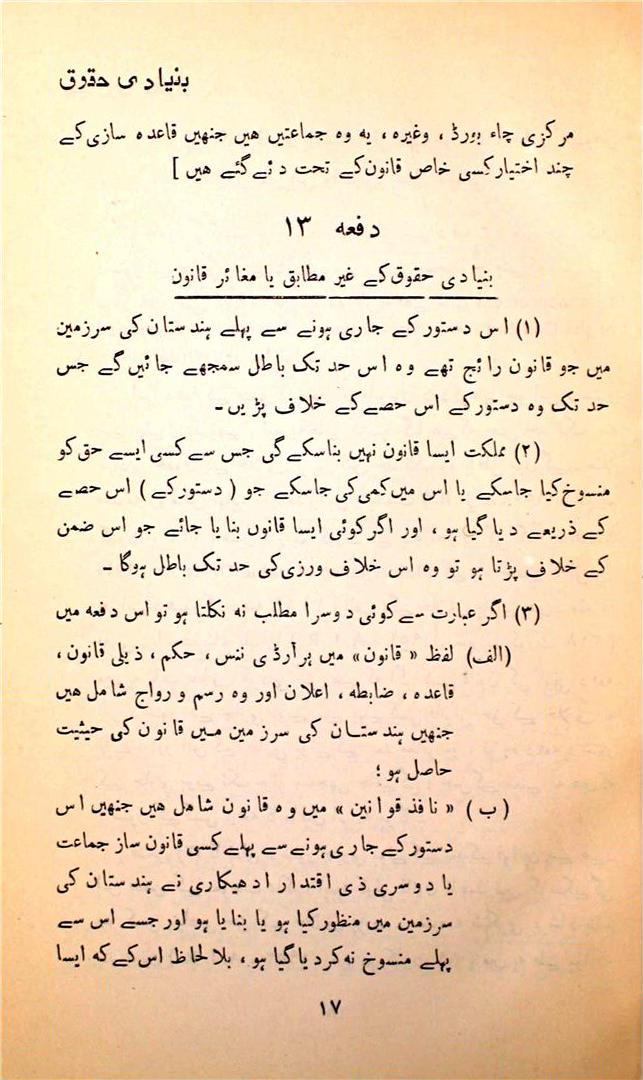 بنیادی حقوق
مرکزی چاء بورڈ ، وغیرہ ، یہ وہ جماعتیں ہیں جنھیں قاعدہ سازی کے
چند اختیار کسی خاص قانون کے تحت دئے گئے ہیں ]
دفعہ ۱۳
بنیادی حقوق کے غیر مطابق یا مغائر قانون
(۱) اس دستور کے جاری ہونے سے پہلے ہندستان کی سرزمین
میں جو قانون رائج تھے وہ اس حد تک باطل سمجھے جائیں گے جس
حد تک وہ دستور کے اس حصے کے خلاف پڑیں۔
(۲) مملکت ایسا قانون نہیں بناسکے گی جس سے کسی ایسے حق کو
منسوخ کیا جاسکے یا اس میں کمی کی جاسکے جو ( دستور کے ) اس حصے
کے ذریعے دیا گیا ہو ، اور اگر کوئی ایسا قانوں بنایا جائے جو اس ضمن
کے خلاف پڑتا ہو تو وہ اس خلاف ورزی کی حد تک باطل ہوگا ۔
(۳) اگر عبارت سے کوئی دوسرا مطلب نہ نکلتا ہو تو اس دفعہ میں
(الف) لفظ « قانون » میں ہر آرڈی ننس ، حکم ، ذیلی قانون ،
قاعدہ ، ضابطہ ، اعلان اور وہ رسم و رواج شامل ہیں
جنھیں ہندستان کی سرزمین میں قانون کی حیثیت
حاصل ہو ؛
(ب) « نافذ قوانین » میں وہ قانون شامل ہیں جنھیں اس
دستور کے جاری ہونے سے پہلے کسی قانون ساز جماعت
یا دوسری ذی اقتدار ادھیکاری نے ہندستان کی
سرزمین میں منظور کیا ہو یا بنایا ہو اور جسے اس سے
پہلے منسوخ نہ کردیا گیا ہو ، بلا لحاظ اس کے کہ ایسا
۱۷